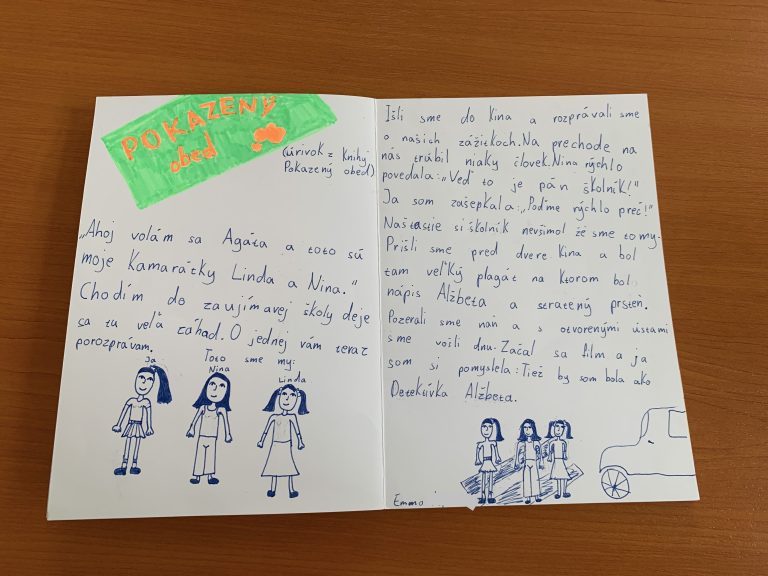 POKAZENÝ
obed
(úrivok z knihy
Pokazený obed)
„Ahoj volám sa Agáta a toto sú
moje kamarátky Linda a Nina."
Chodím do zaujímavej školy deje
sa tu veľa záhad. O jednej vám teraz
porozprávam.
Toto sme my:
Ja
Nina
Linda
Išli sme do kina a rozprávali sme
o našich zážitkoch. Na prechode na
nás trúbil niaky človek. Nina rýchlo
povedala: „Veď to je pán školník!"
Ja som zašepkala: „Poďme rýchlo preč!"
Naštastie si školník nevšimol že sme to my.
Prišli sme pred dvere kina a bol
tam veľký plagát na ktorom bol
nápis Alžbeta a stratený prsteň.
Pozerali sme naň a s otvorenými ústami
sme vošli dnu. Začal sa film a ja
som si pomyslela: Tiež by som bola ako
Detektívka Alžbeta.